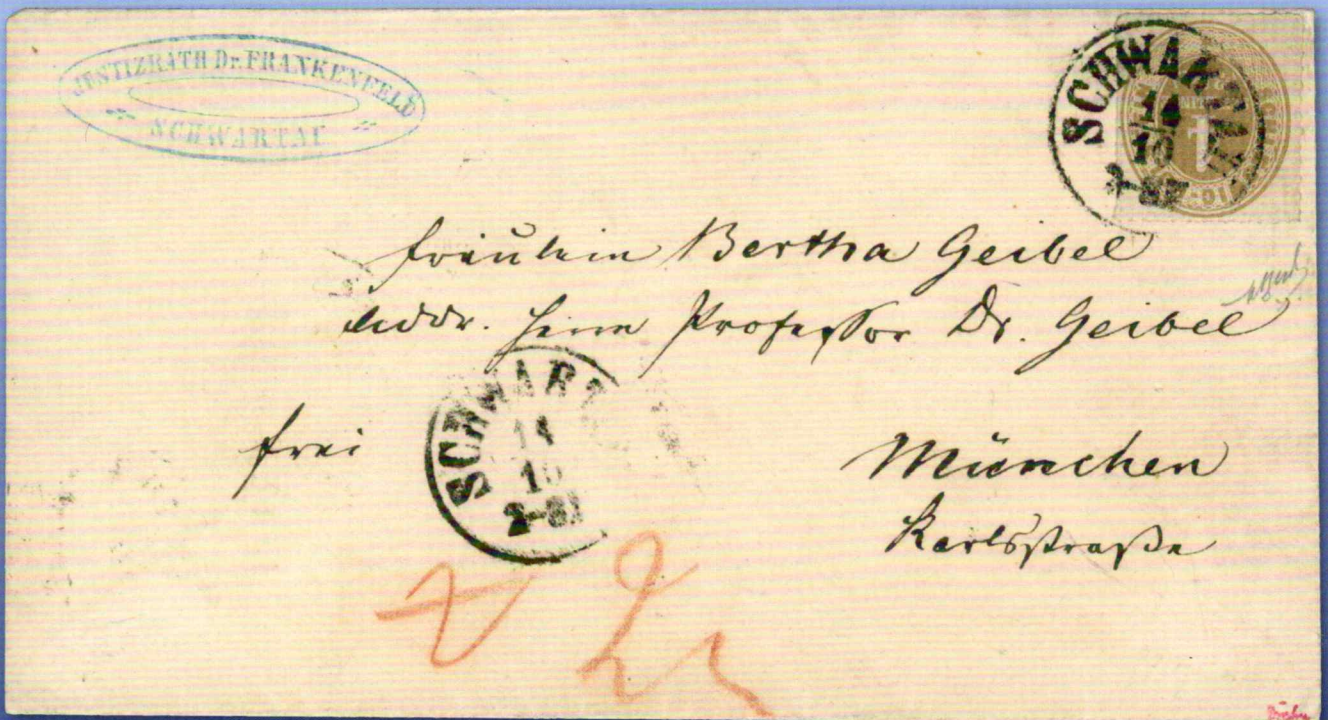 JUSTIZRATH Dr. FRANKENFELD
SCHWARTAU
SCHWARTAU
14
10
2-3
1
Fräulein Bertha Geibel
Addr. Herrn Professor Dr. Geibel
SCHWART
14
10
2-3
frei
München
Karlsstraße